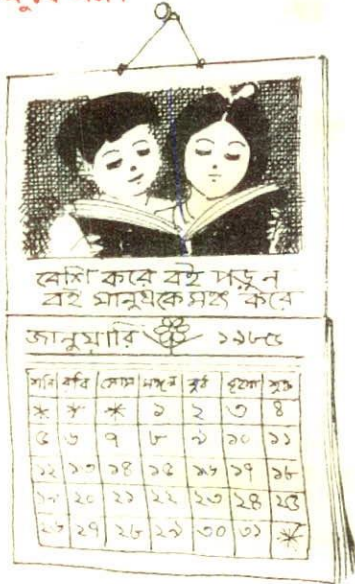 বেশি করে বই পড়ুন
বই মানুষকে সৎ করে
জানুয়ারি ১৯৮৫
শনি রবি সোম মঙ্গল বুধ বৃহঃ শুক্র
* * * ১ ২ ৩ ৪
৫ ৬ ৭ ৮ ৯ ১০ ১১
১২ ১৩ ১৪ ১৫ ১৬ ১৭ ১৮
১৯ ২০ ২১ ২২ ২৩ ২৪ ২৫
২৬ ২৭ ২৮ ২৯ ৩০ ৩১ *